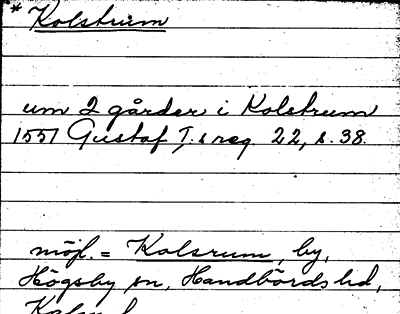 * Kolstrum
um 2 gårder i Kolstrum
1551 Gustaf I:s reg. 22, s. 38.
möjl. = Kolsrum, by,
Högsby sn, Handbörds hd,